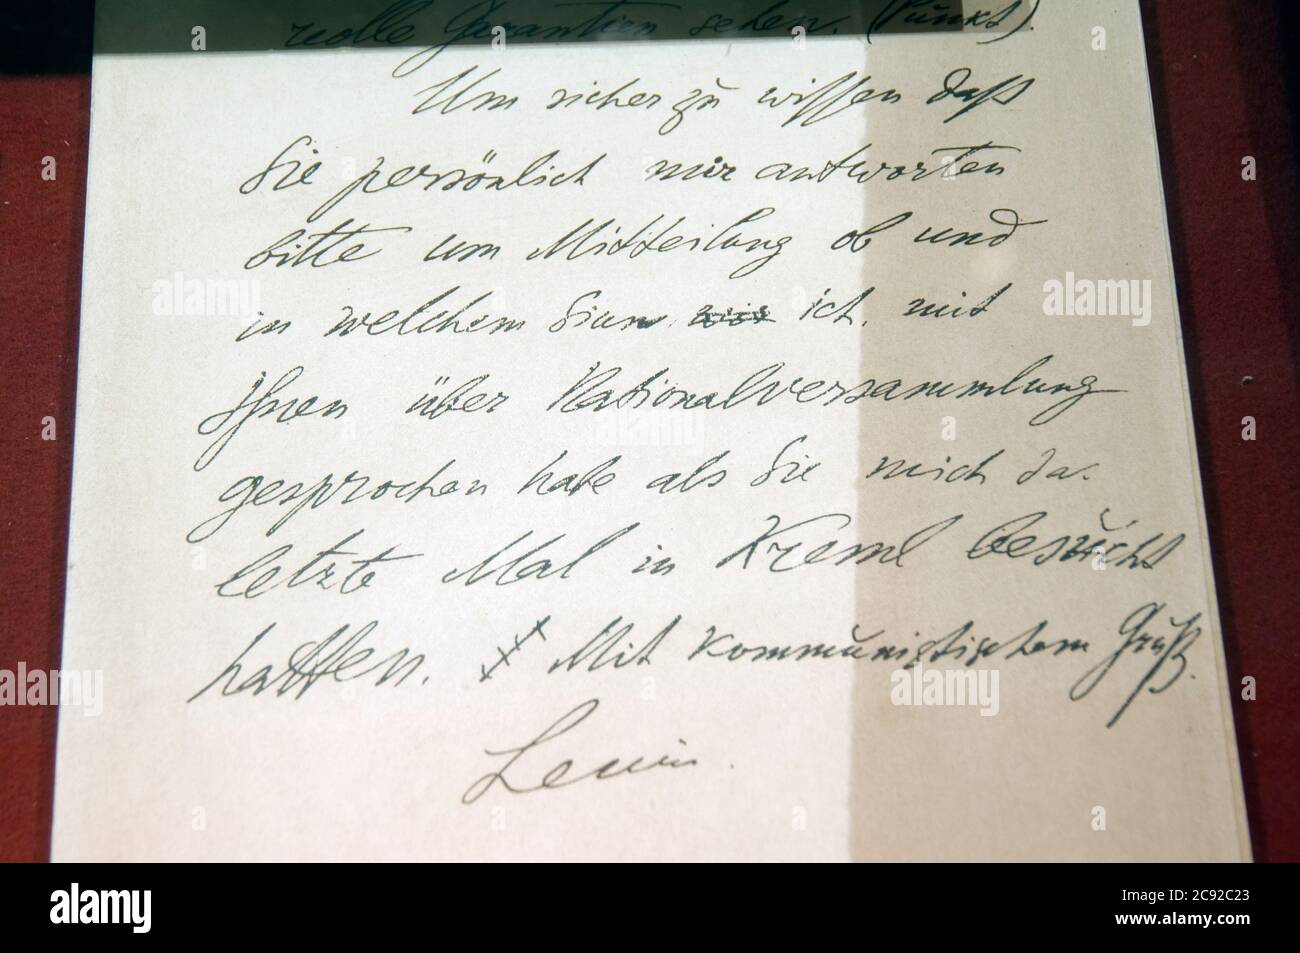 volle Garantien sehen. (Punkt).
Um sicher zu wissen daß
Sie persönlich mir antworten
bitte um Mitteilung ob und
in welchem Sinn ich mit
Ihnen über Nationalversammlung
gesprochen habe als Sie mich da.
letzte Mal in Kreml besucht
hatten. Mit kommunistischem Gruß.
Lenin.
alamy stock photo
alamy
Image ID: 2C92C23
www.alamy.com